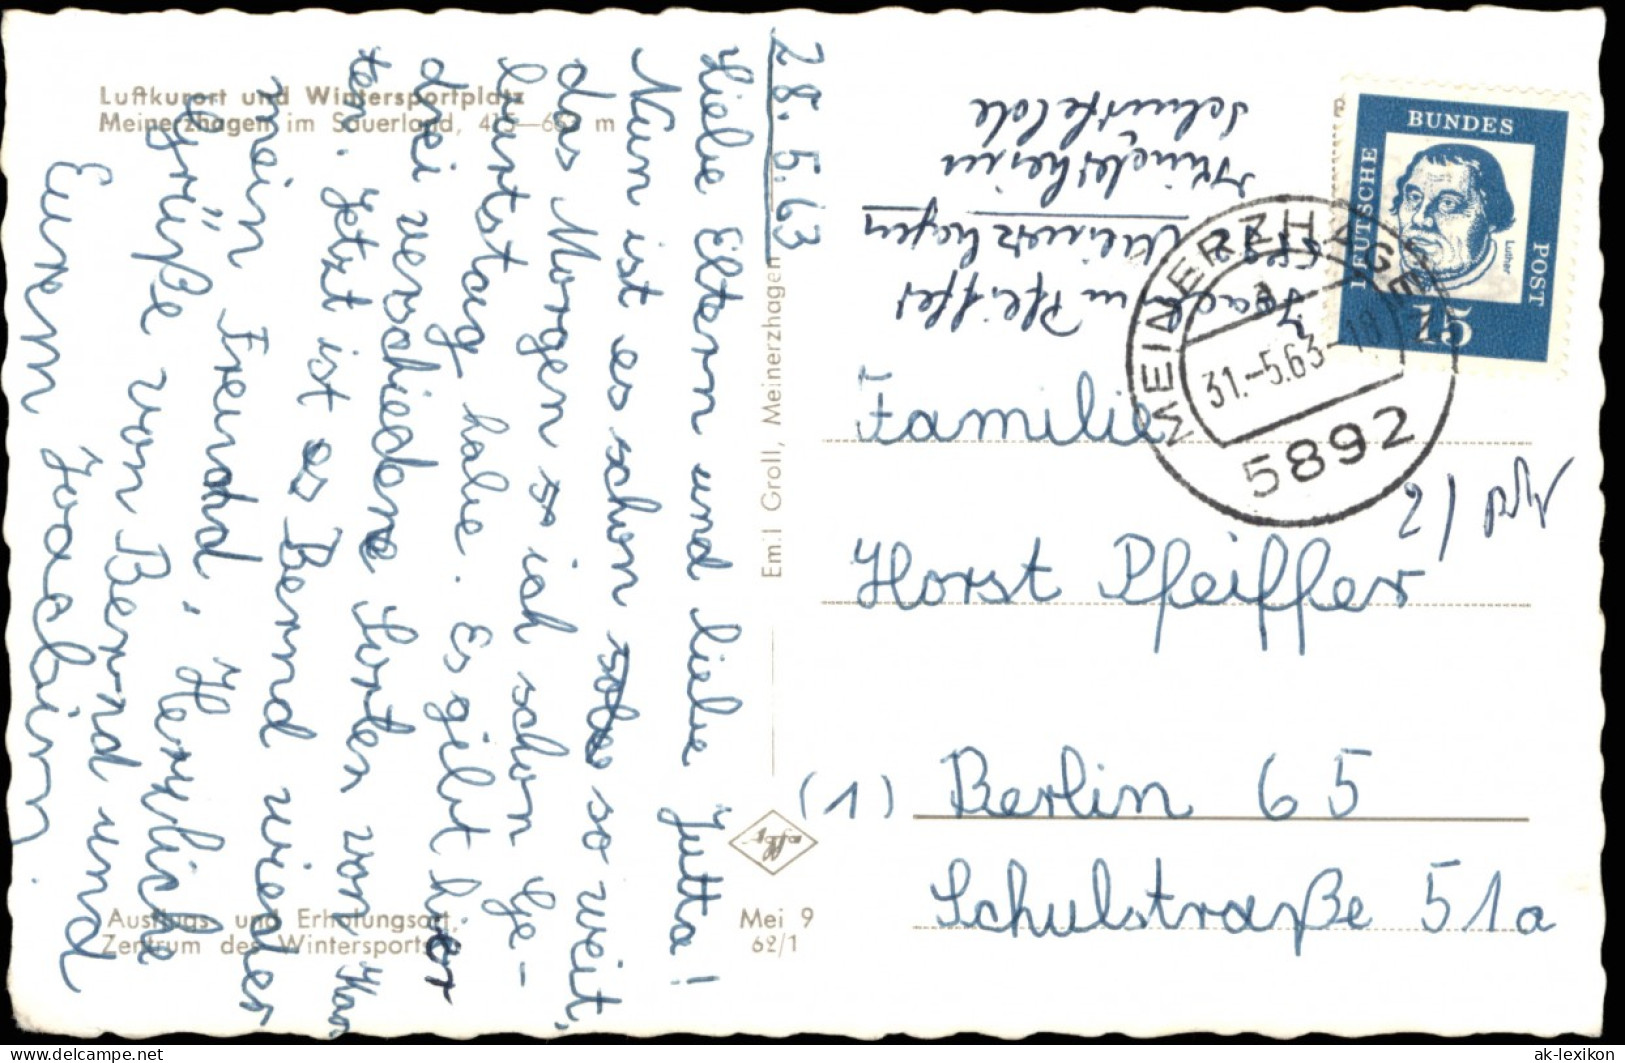 Luftkurort und Wintersportplatz
Meinerzhagen im Sauerland, 415—66 m
28.5.63
Liebe Eltern und liebe Jutta!
Nun ist es schon so weit,
das Morgen ich schon Ge-
burtstag habe. Es gibt hier
drei verschiedene Sorten von Kar
ten. Jetzt ist es Bernd wieder
mein Freund. Herzliche
Grüße von Bernd und
Eurem Joachim.
Ausflugs- und Erholungsort,
Zentrum des Wintersports
Emil Groll, Meinerzhagen
Mei 9
62/1
Joachim Pfeiffer
5892 Meinerzhagen
Kinderheim
DEUTSCHE
BUNDES
POST
Luther
15
MEINERZHAGEN
31.-5.63-18
5892
Familie
Horst Pfeiffer
(1) Berlin 65
Schulstraße 51a
ak-lexikon